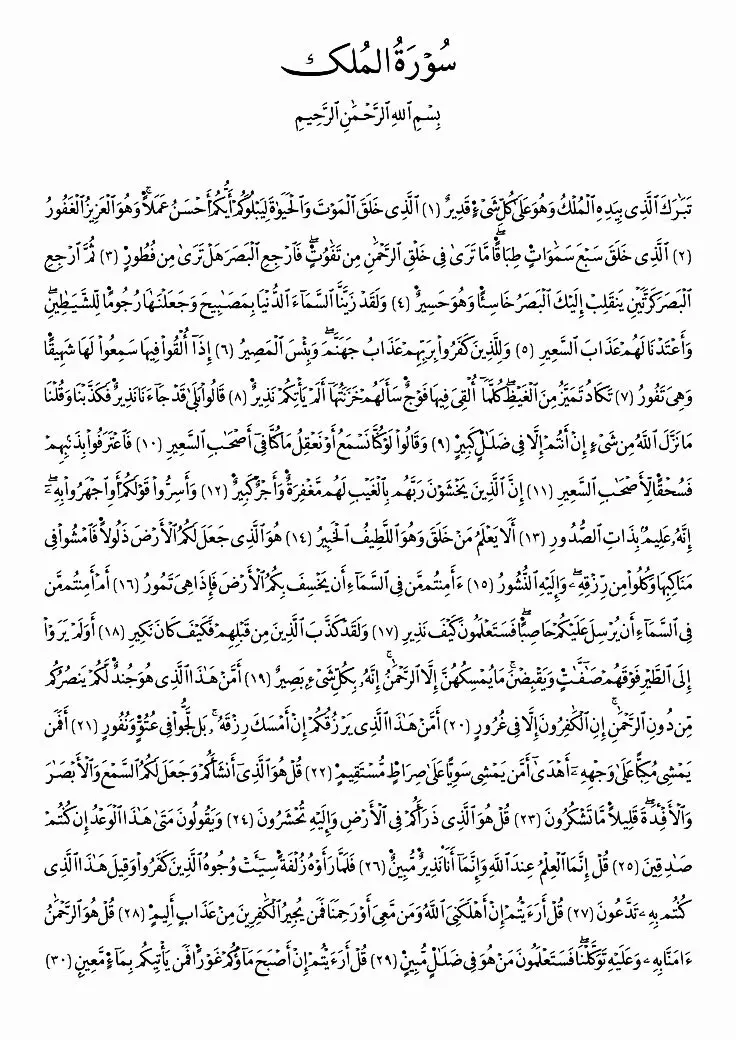 سُورَةُ الْمُلْكِ
بِسْمِ ٱللَّهِ ٱلرَّحْمَٰنِ ٱلرَّحِيمِ
تَبَٰرَكَ ٱلَّذِى بِيَدِهِ ٱلْمُلْكُ وَهُوَ عَلَىٰ كُلِّ شَىْءٍ قَدِيرٌ (١) ٱلَّذِى خَلَقَ ٱلْمَوْتَ وَٱلْحَيَوٰةَ لِيَبْلُوَكُمْ أَيُّكُمْ أَحْسَنُ عَمَلًاۚ وَهُوَ ٱلْعَزِيزُ ٱلْغَفُورُ
(٢) ٱلَّذِى خَلَقَ سَبْعَ سَمَٰوَاتٍ طِبَاقًاۖ مَّا تَرَىٰ فِى خَلْقِ ٱلرَّحْمَٰنِ مِن تَفَٰوُتٍۖ فَٱرْجِعِ ٱلْبَصَرَ هَلْ تَرَىٰ مِن فُطُورٍ (٣) ثُمَّ ٱرْجِعِ
ٱلْبَصَرَ كَرَّتَيْنِ يَنقَلِبْ إِلَيْكَ ٱلْبَصَرُ خَاسِئًا وَهُوَ حَسِيرٌ (٤) وَلَقَدْ زَيَّنَّا ٱلسَّمَآءَ ٱلدُّنْيَا بِمَصَٰبِيحَ وَجَعَلْنَٰهَا رُجُومًا لِّلشَّيَٰطِينِۖ
وَأَعْتَدْنَا لَهُمْ عَذَابَ ٱلسَّعِيرِ (٥) وَلِلَّذِينَ كَفَرُوا۟ بِرَبِّهِمْ عَذَابُ جَهَنَّمَۖ وَبِئْسَ ٱلْمَصِيرُ (٦) إِذَآ أُلْقُوا۟ فِيهَا سَمِعُوا۟ لَهَا شَهِيقًا
وَهِىَ تَفُورُ (٧) تَكَادُ تَمَيَّزُ مِنَ ٱلْغَيْظِۖ كُلَّمَآ أُلْقِىَ فِيهَا فَوْجٌ سَأَلَهُمْ خَزَنَتُهَآ أَلَمْ يَأْتِكُمْ نَذِيرٌ (٨) قَالُوا۟ بَلَىٰ قَدْ جَآءَنَا نَذِيرٌ فَكَذَّبْنَا وَقُلْنَا
مَا نَزَّلَ ٱللَّهُ مِن شَىْءٍ إِنْ أَنتُمْ إِلَّا فِى ضَلَٰلٍ كَبِيرٍ (٩) وَقَالُوا۟ لَوْ كُنَّا نَسْمَعُ أَوْ نَعْقِلُ مَا كُنَّا فِىٓ أَصْحَٰبِ ٱلسَّعِيرِ (١٠) فَٱعْتَرَفُوا۟ بِذَنۢبِهِمْ
فَسُحْقًا لِّأَصْحَٰبِ ٱلسَّعِيرِ (١١) إِنَّ ٱلَّذِينَ يَخْشَوْنَ رَبَّهُم بِٱلْغَيْبِ لَهُم مَّغْفِرَةٌ وَأَجْرٌ كَبِيرٌ (١٢) وَأَسِرُّوا۟ قَوْلَكُمْ أَوِ ٱجْهَرُوا۟ بِهِۦٓۖ
إِنَّهُۥ عَلِيمٌۢ بِذَاتِ ٱلصُّدُورِ (١٣) أَلَا يَعْلَمُ مَنْ خَلَقَ وَهُوَ ٱللَّطِيفُ ٱلْخَبِيرُ (١٤) هُوَ ٱلَّذِى جَعَلَ لَكُمُ ٱلْأَرْضَ ذَلُولًا فَٱمْشُوا۟ فِى
مَنَاكِبِهَا وَكُلُوا۟ مِن رِّزْقِهِۦۖ وَإِلَيْهِ ٱلنُّشُورُ (١٥) ءَأَمِنتُم مَّن فِى ٱلسَّمَآءِ أَن يَخْسِفَ بِكُمُ ٱلْأَرْضَ فَإِذَا هِىَ تَمُورُ (١٦) أَمْ أَمِنتُم مَّن
فِى ٱلسَّمَآءِ أَن يُرْسِلَ عَلَيْكُمْ حَاصِبًاۖ فَسَتَعْلَمُونَ كَيْفَ نَذِيرِ (١٧) وَلَقَدْ كَذَّبَ ٱلَّذِينَ مِن قَبْلِهِمْ فَكَيْفَ كَانَ نَكِيرِ (١٨) أَوَلَمْ يَرَوْا۟
إِلَى ٱلطَّيْرِ فَوْقَهُمْ صَٰٓفَّٰتٍ وَيَقْبِضْنَۚ مَا يُمْسِكُهُنَّ إِلَّا ٱلرَّحْمَٰنُۚ إِنَّهُۥ بِكُلِّ شَىْءٍۭ بَصِيرٌ (١٩) أَمَّنْ هَٰذَا ٱلَّذِى هُوَ جُندٌ لَّكُمْ يَنصُرُكُم
مِّن دُونِ ٱلرَّحْمَٰنِۚ إِنِ ٱلْكَٰفِرُونَ إِلَّا فِى غُرُورٍ (٢٠) أَمَّنْ هَٰذَا ٱلَّذِى يَرْزُقُكُمْ إِنْ أَمْسَكَ رِزْقَهُۥۚ بَل لَّجُّوا۟ فِى عُتُوٍّ وَنُفُورٍ (٢١) أَفَمَن
يَمْشِى مُكِبًّا عَلَىٰ وَجْهِهِۦٓ أَهْدَىٰٓ أَمَّن يَمْشِى سَوِيًّا عَلَىٰ صِرَٰطٍ مُّسْتَقِيمٍ (٢٢) قُلْ هُوَ ٱلَّذِىٓ أَنشَأَكُمْ وَجَعَلَ لَكُمُ ٱلسَّمْعَ وَٱلْأَبْصَٰرَ
وَٱلْأَفْـِٔدَةَۖ قَلِيلًا مَّا تَشْكُرُونَ (٢٣) قُلْ هُوَ ٱلَّذِى ذَرَأَكُمْ فِى ٱلْأَرْضِ وَإِلَيْهِ تُحْشَرُونَ (٢٤) وَيَقُولُونَ مَتَىٰ هَٰذَا ٱلْوَعْدُ إِن كُنتُمْ
صَٰدِقِينَ (٢٥) قُلْ إِنَّمَا ٱلْعِلْمُ عِندَ ٱللَّهِ وَإِنَّمَآ أَنَا۠ نَذِيرٌ مُّبِينٌ (٢٦) فَلَمَّا رَأَوْهُ زُلْفَةً سِيٓـَٔتْ وُجُوهُ ٱلَّذِينَ كَفَرُوا۟ وَقِيلَ هَٰذَا ٱلَّذِى
كُنتُم بِهِۦ تَدَّعُونَ (٢٧) قُلْ أَرَءَيْتُمْ إِنْ أَهْلَكَنِىَ ٱللَّهُ وَمَن مَّعِىَ أَوْ رَحِمَنَا فَمَن يُجِيرُ ٱلْكَٰفِرِينَ مِنْ عَذَابٍ أَلِيمٍ (٢٨) قُلْ هُوَ ٱلرَّحْمَٰنُ
ءَامَنَّا بِهِۦ وَعَلَيْهِ تَوَكَّلْنَاۖ فَسَتَعْلَمُونَ مَنْ هُوَ فِى ضَلَٰلٍ مُّبِينٍ (٢٩) قُلْ أَرَءَيْتُمْ إِنْ أَصْبَحَ مَآؤُكُمْ غَوْرًا فَمَن يَأْتِيكُم بِمَآءٍ مَّعِينٍۭ (٣٠)